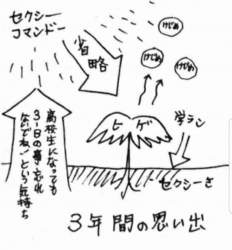 セクシー
コマンドー
省略
けだめ
けだめ
けだめ
高校生になっても
31日の事忘れ
ないでね!という気持ち
ヒゲ
学ラン
セクシーさ
3年間の思い出